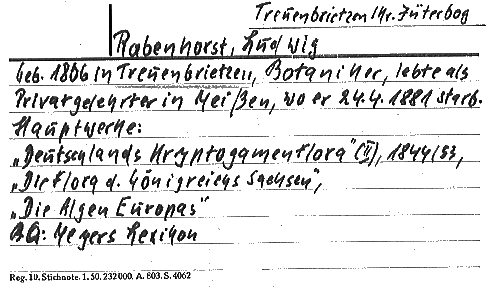 Treuenbrietzen Kr. Jüterbog
Rabenhorst, Ludwig
geb. 1806 in Treuenbrietzen, Botaniker, lebte als
Privatgelehrter in Meißen, wo er 24.4.1881 starb.
Hauptwerke:
„Deutschlands Kryptogamenflora" (II), 1844/53,
„Die Flora d. Königreichs Sachsen",
„Die Algen Europas"
BQ: Meyers Lexikon
Reg. 10. Stichnote. 1. 50. 232000. A. 803. S. 4062